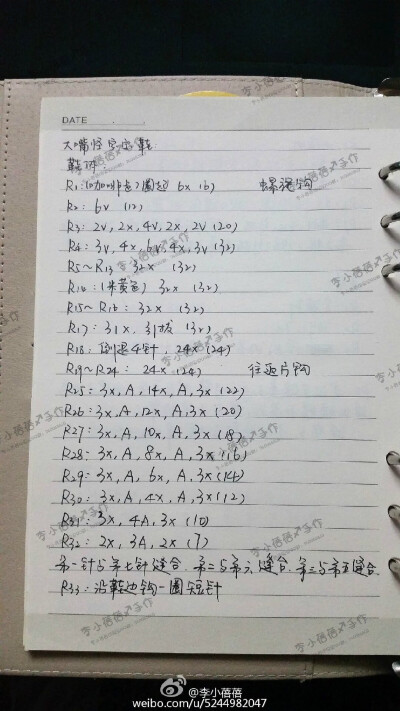 DATE
大嘴怪宝宝鞋
R1:(咖啡色)圈起 6x (6) 螺旋钩
R2: 6v (12)
R3: 2v, 2x, 4v, 2x, 2v (20)
R4: 3v, 4x, 6v, 4x, 3v (32)
R5~R13 32x (32)
R14:(米黄色) 32x (32)
R15~R16: 32x (32)
R17: 31x, 引拔 (32)
R18: 倒退4针, 24x (24)
R19~R24: 24x (24) 往返片钩
R25: 3x, A, 14x, A, 3x (22)
R26: 3x, A, 12x, A, 3x (20)
R27: 3x, A, 10x, A, 3x (18)
R28: 3x, A, 8x, A, 3x (16)
R29: 3x, A, 6x, A, 3x (14)
R30: 3x, A, 4x, A, 3x (12)
R31: 3x, 4A, 3x (10)
R32: 2x, 3A, 2x (7)
第一针与第七针缝合. 第二与第六缝合. 第三与第五缝合
R33: 沿鞋边钩一圈短针
@李小蓓蓓
weibo.com/u/5244982047